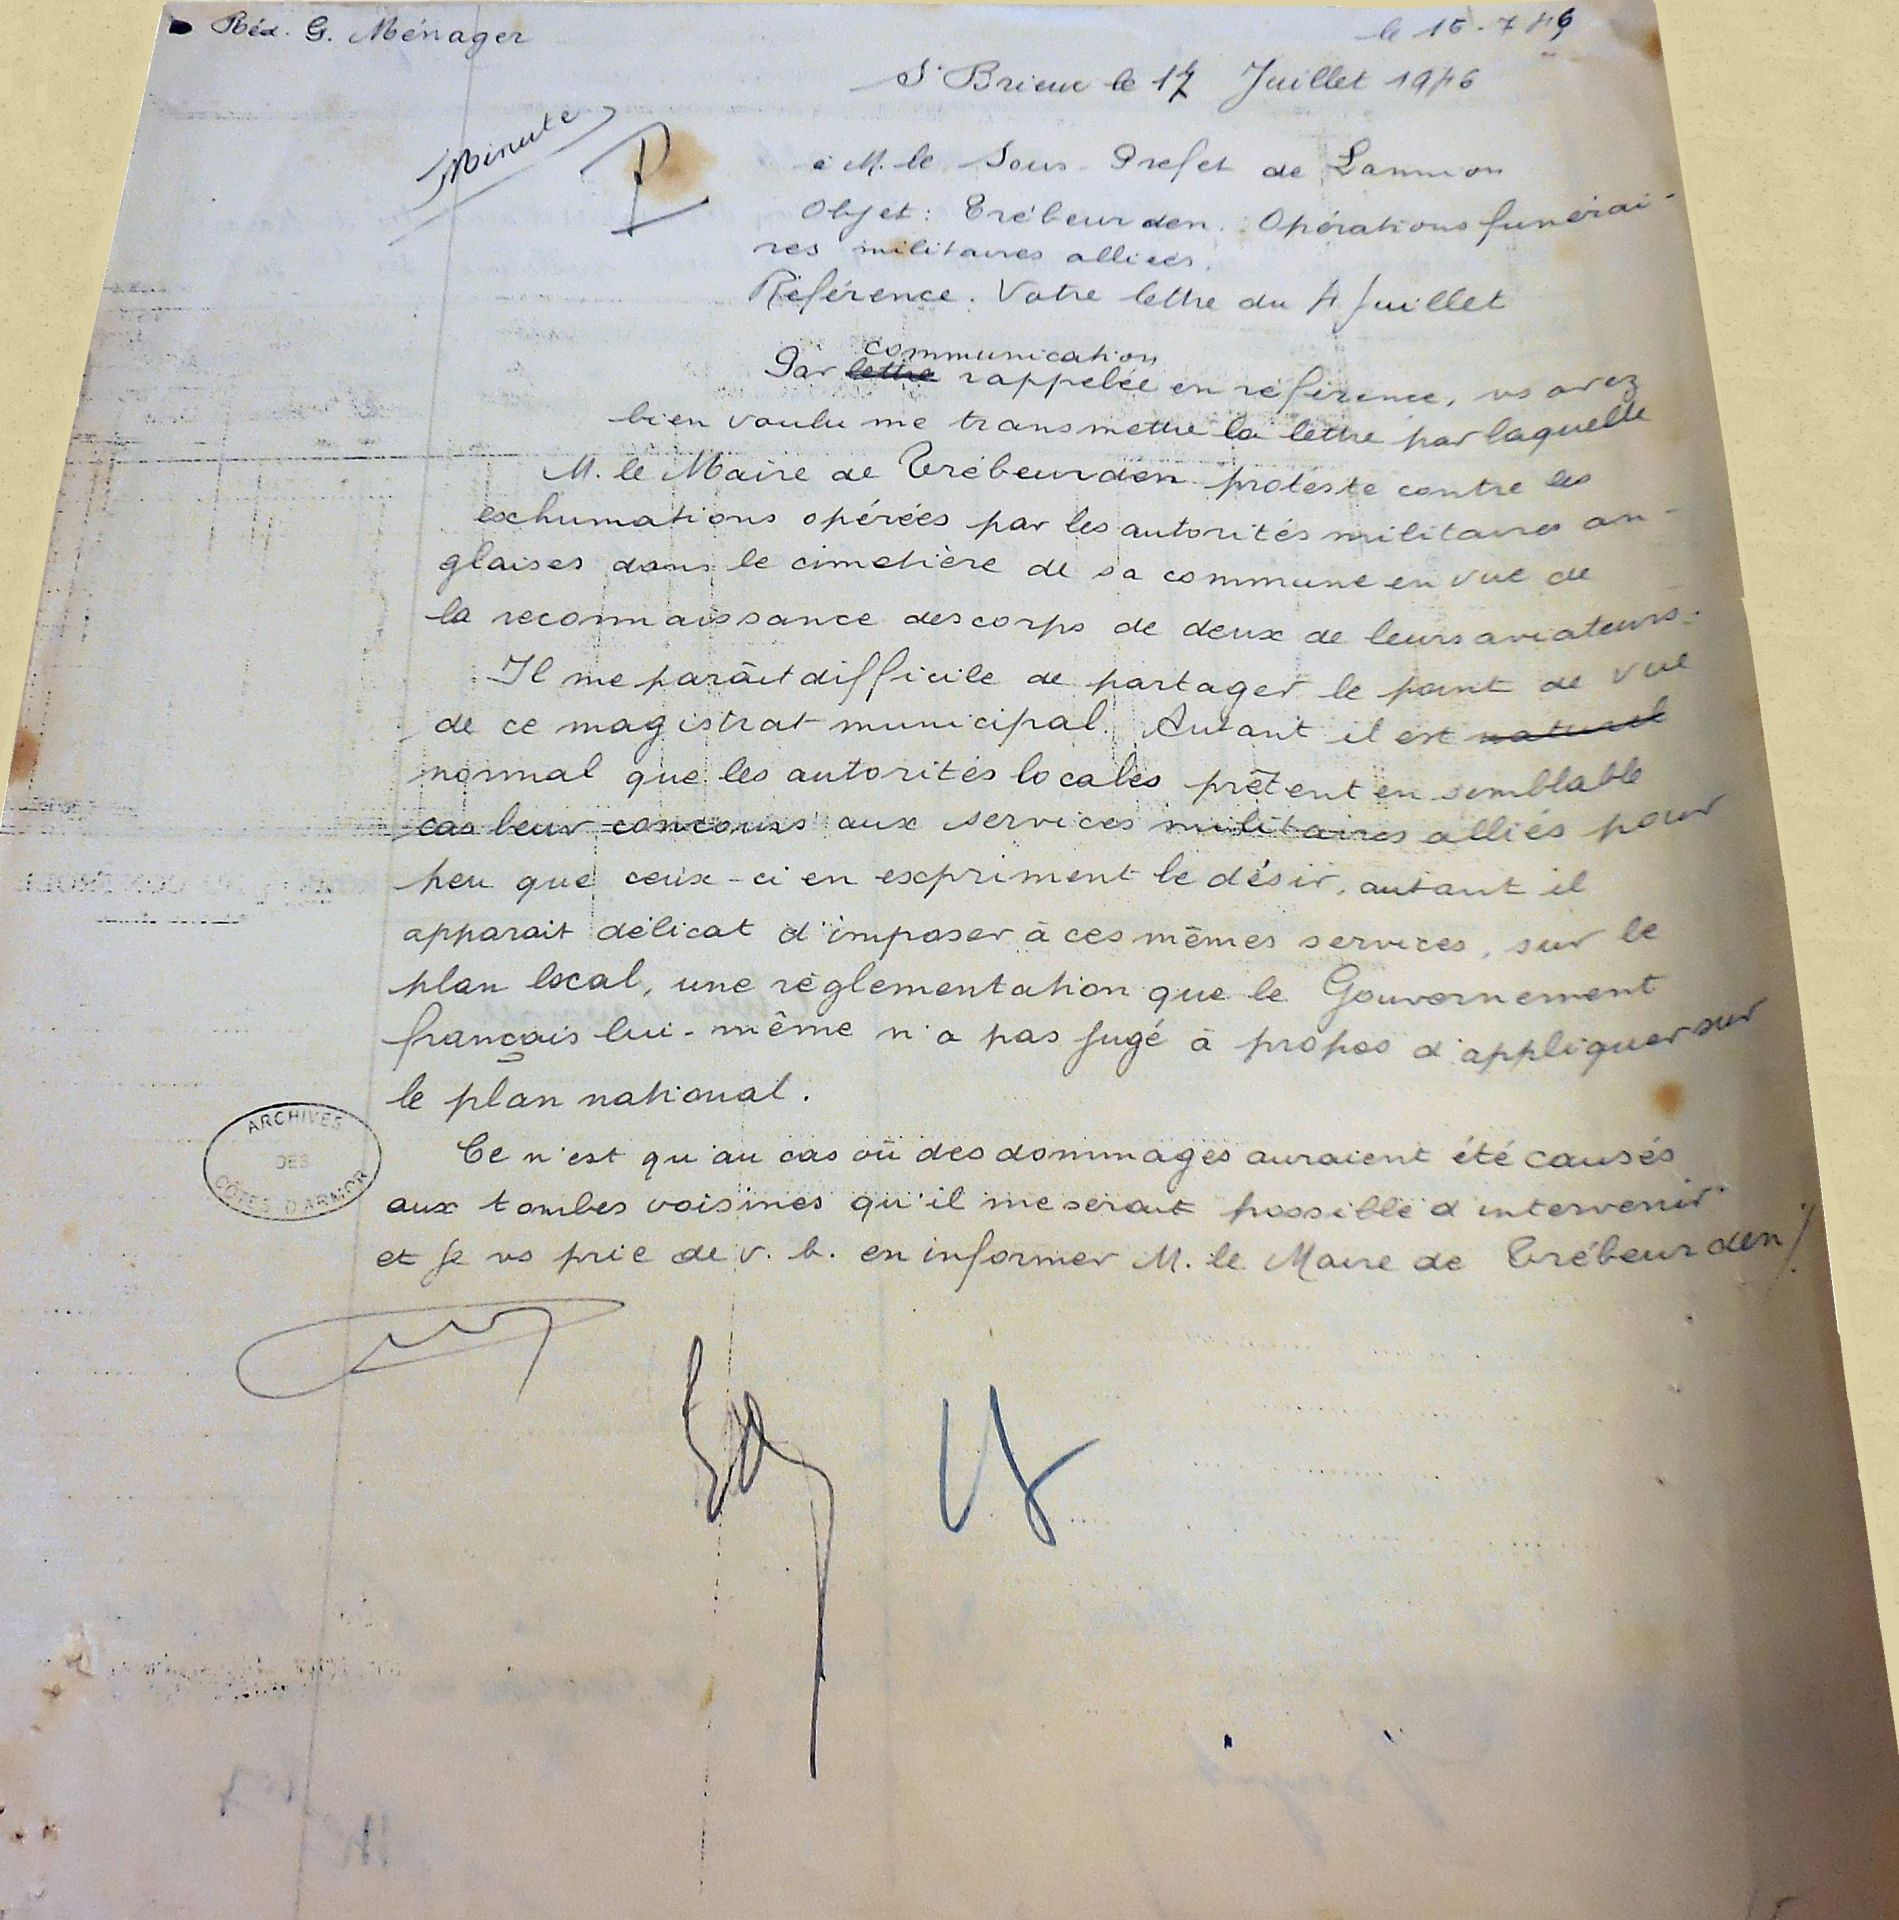 Réd. G. Ménager
le 15-7-46
St Brieuc le 17 Juillet 1946
Minute
à M. le Sous-Prefet de Lannion
Objet: Trébeurden. Opérations funérai-
res militaires alliées.
Référence. Votre lettre du 4 Juillet
communication
Par lettre rappelée en référence, vs avez
bien voulu me transmettre la lettre par laquelle
M. le Maire de Trébeurden proteste contre les
exhumations opérées par les autorités militaires an-
glaises dans le cimetière de sa commune en vue de
la reconnaissance des corps de deux de leurs aviateurs.
Il me paraît difficile de partager le point de vue
de ce magistrat municipal. Autant il est naturel
normal que les autorités locales prêtent en semblable
cas leur concours aux services militaires alliés pour
peu que ceux-ci en expriment le désir, autant il
apparait délicat d'imposer à ces mêmes services, sur le
plan local, une réglementation que le Gouvernement
français lui-même n'a pas jugé à propos d'appliquer sur
le plan national.
Ce n'est qu'au cas où des dommages auraient été causés
aux tombes voisines qu'il me serait possible d'intervenir
et je vs prie de v. b. en informer M. le Maire de Trébeurden ./.
ARCHIVES
DES
CÔTES D'ARMOR